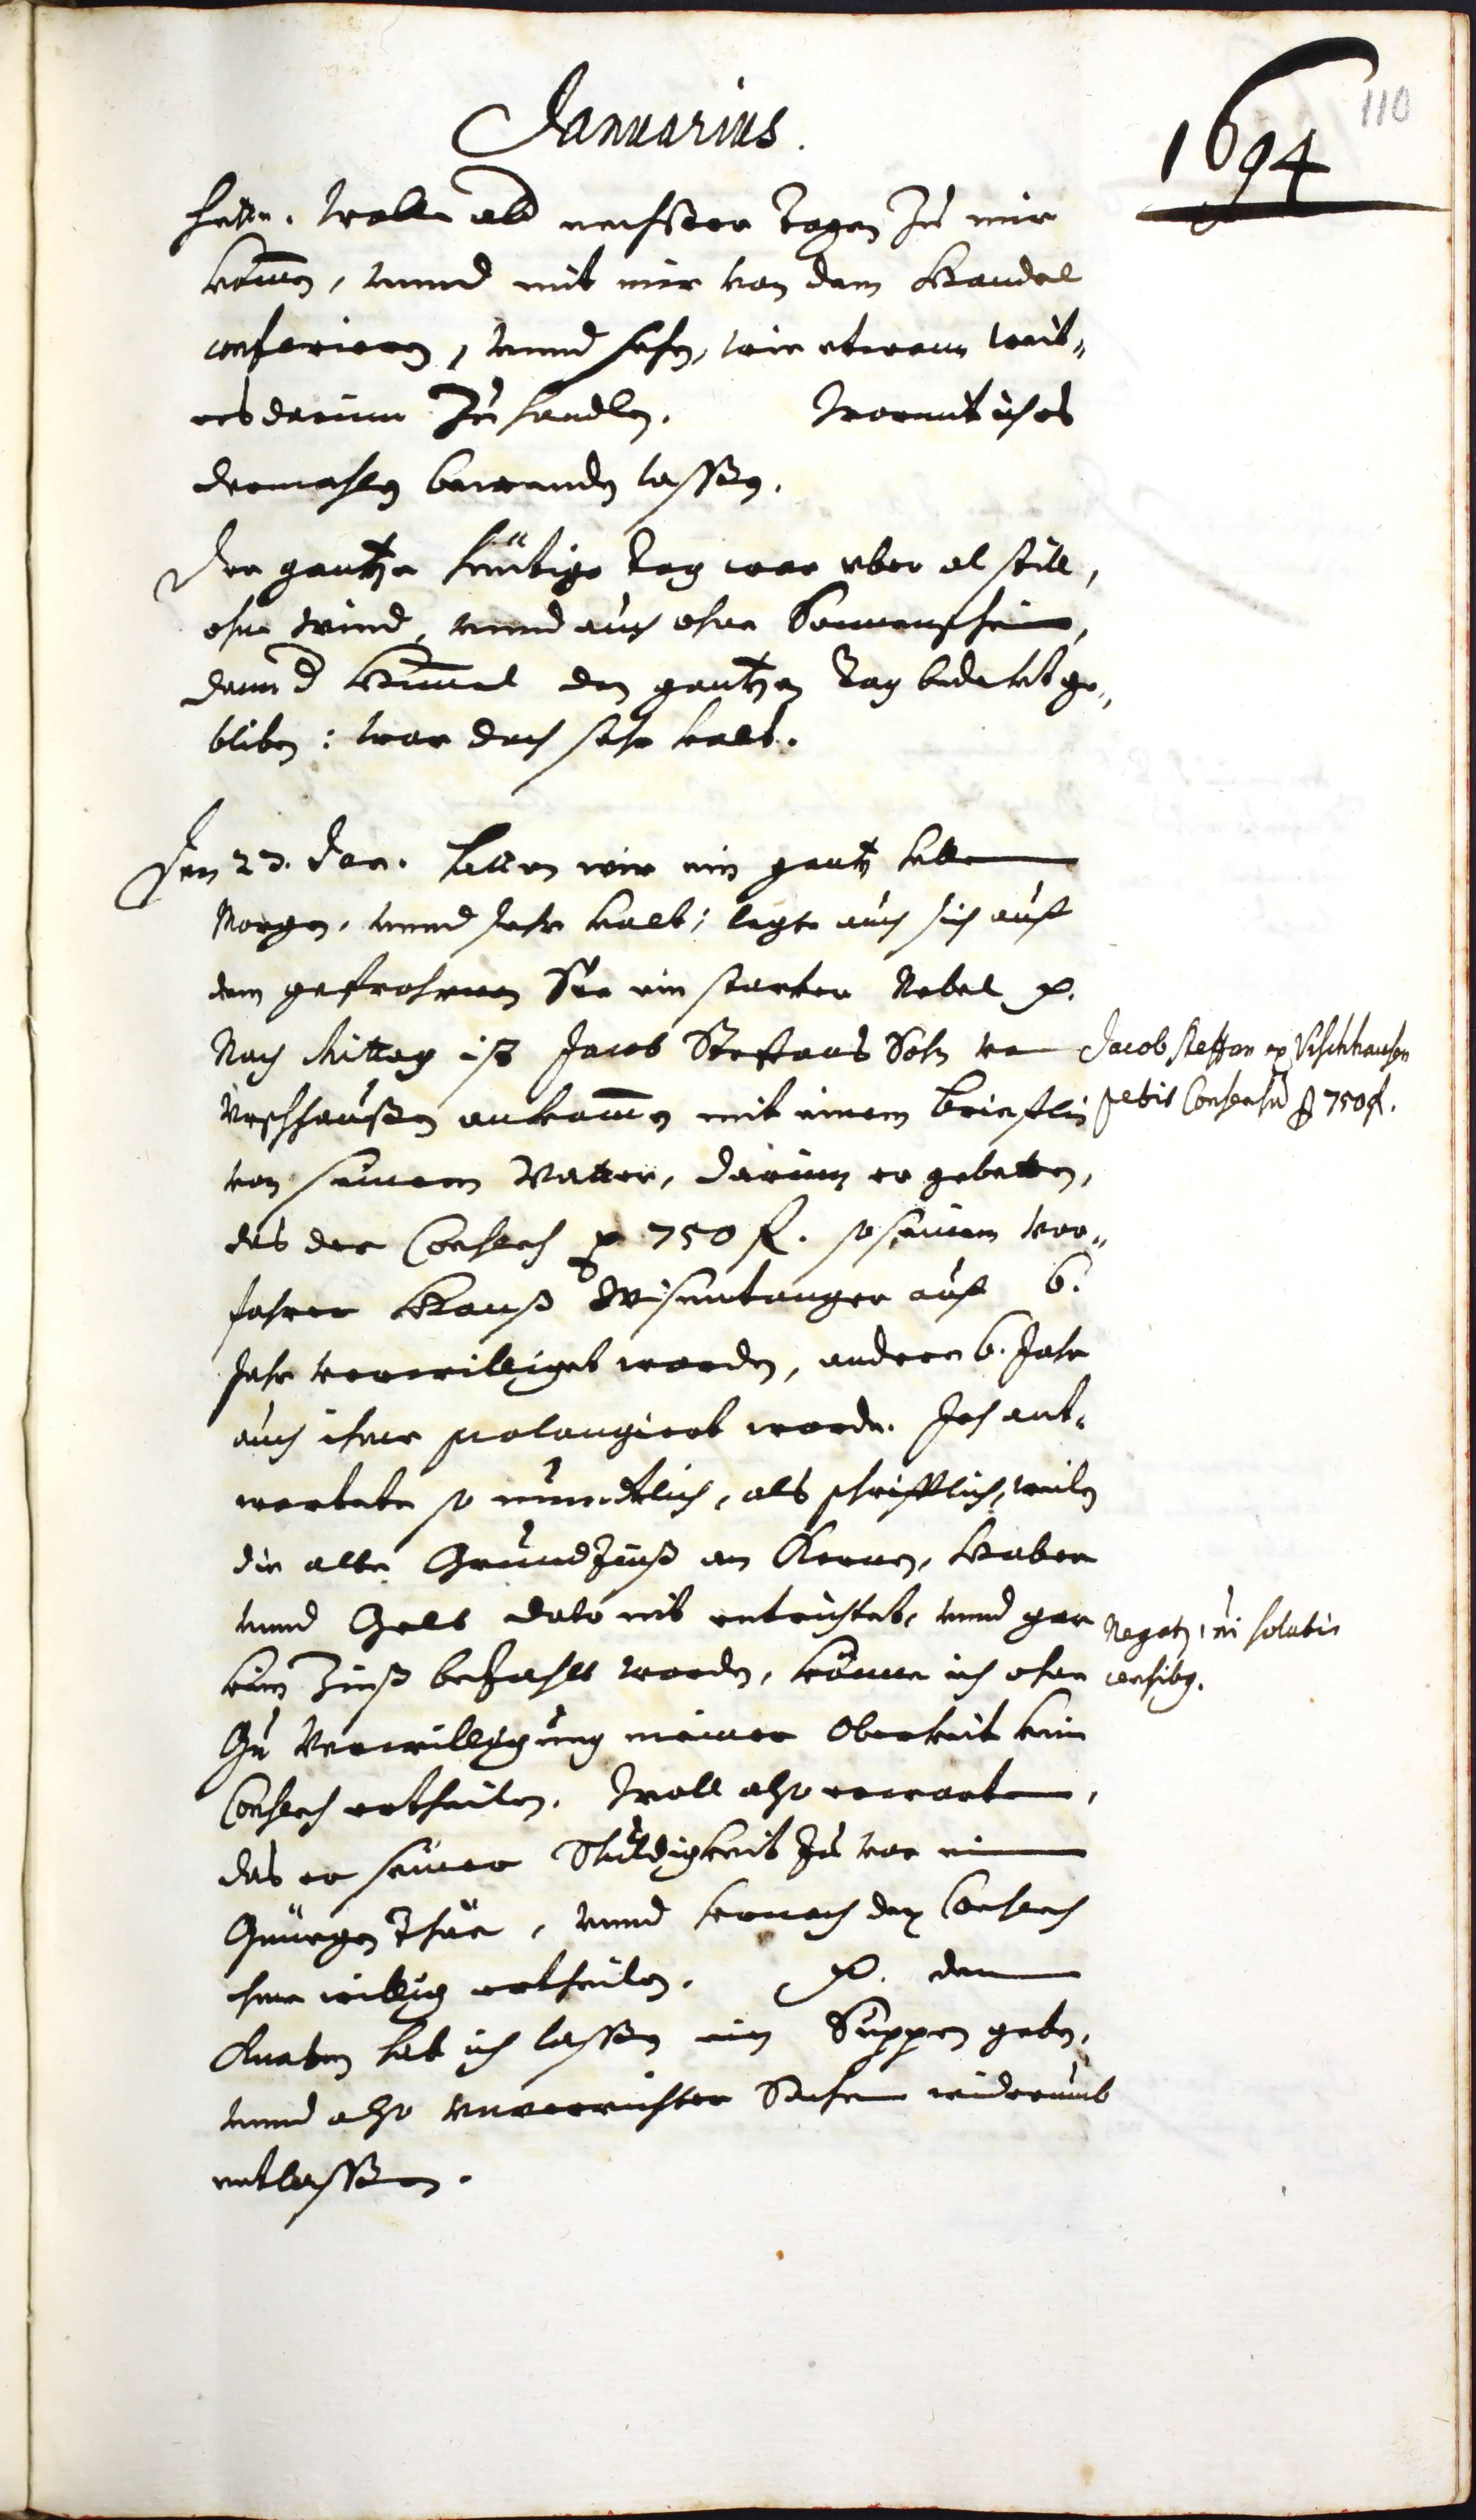 Januarius.
1694
110
hette. Wolle als nechster Tagen zu mir
kommen, unnd mit mir von dem Handel
conferieren, unnd sehen, wie etwann weit-
ers darinn zu handlen. Wormit ich es
dermahlen bewenden lassen.
Der gantze heütige Tag war uber al still,
ohne Wind, unnd auch ohne Sonnenschein,
dann d Himmel den gantzen Tag bedeckt ge-
bliben: war doch sehr kalt.
Den 23. Jan. hatten wir ein gantz hellen
Morgen, unnd sehr kalt; legte auch sich auf
dem gefrohrnen See ein starker Nebel p.
Nach Mittag ist Jacob Steffans Sohn von
Vischhausen ankommen mit einem brieflin
von seinem Vatter, darinn er gebetten,
das der Consens p 750 fl. so seinem Vor-
fahrer Hanß Wisentanger auf 6.
Jahr verwilliget worden, andere 6. Jahr
auch ihme prolongiert werde. Ich ant-
wortete so mundtlich, als schrifftlich, weilen
die alte Grundzinß an Kernen, Haber
unnd Gelt dato nit entrichtet, unnd gar
kein Zinß bezahlt worden, könne ich ohne
Verwilligung meiner Oberkeit kein
Consens ertheilen. Woll also erwarten,
das er seiner Schuldigkeit zu vor ein
Genüegen thüe, unnd hernach den Consens
ihme willig ertheilen. p. dem
Knaben hab ich lassen ein Suppen geben,
unnd also unverrichter Sachen widerumb
entlassen.
Jacob Steffan ex Vischhausen
petit Consensu p 750 fl.
Negatz, ni solutis
censibg.